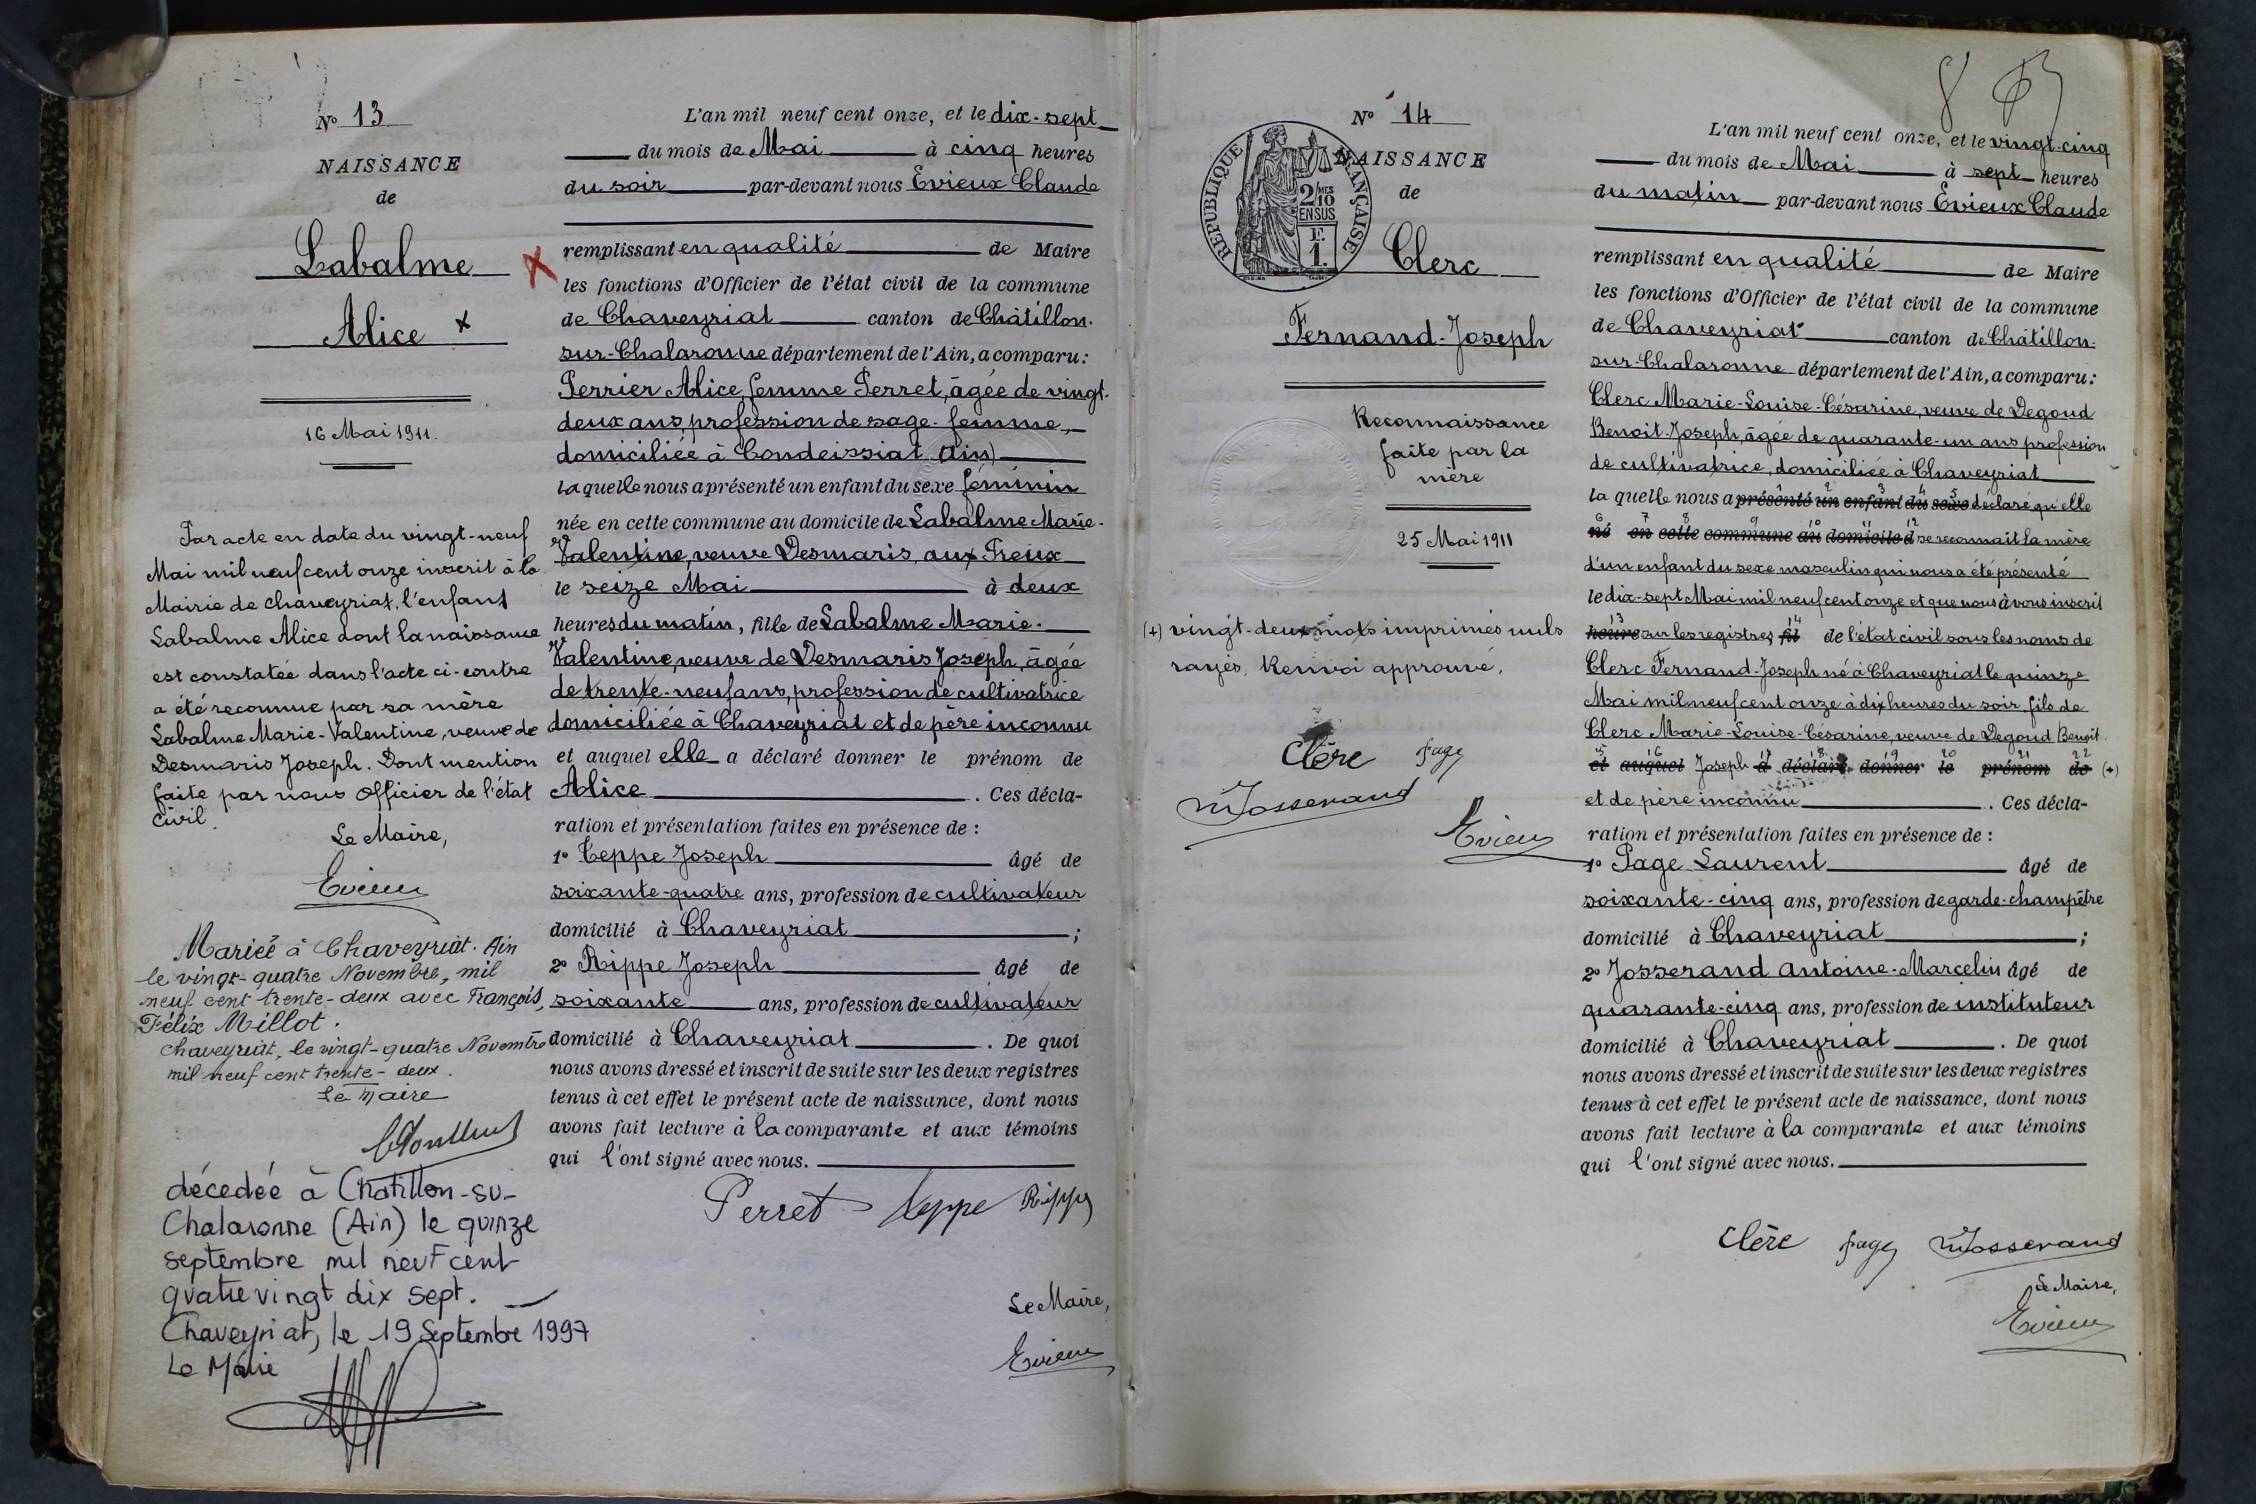 N° 13
NAISSANCE
de
Labalme
Alice x
16 Mai 1911.
Par acte en date du vingt-neuf
Mai mil neuf cent onze inscrit à la
Mairie de Chaveyriat, l'enfant
Labalme Alice dont la naissance
est constatée dans l'acte ci-contre
a été reconnue par sa mère
Labalme Marie-Valentine, veuve de
Desmaris Joseph. Dont mention
faite par nous Officier de l'état
civil.
Le Maire,
Evieux
Mariée à Chaveyriat. Ain
le vingt-quatre Novembre, mil
neuf cent trente-deux avec François,
Félix Millot.
Chaveyriat, le vingt-quatre Novembre
mil neuf cent trente-deux.
Le Maire
décedée à Chatillon-su-
Chalaronne (Ain) le quinze
septembre mil neuf cent
quatre vingt dix sept.
Chaveyriat, le 19 Septembre 1997
Le Maire
L'an mil neuf cent onze, et le dix-sept
du mois de Mai à cinq heures
du soir par-devant nous Evieux Claude
remplissant en qualité de Maire
les fonctions d'Officier de l'état civil de la commune
de Chaveyriat canton de Châtillon-
sur-Chalaronne département de l'Ain, a comparu:
Perrier Alice, femme Perret, âgée de vingt-
deux ans, profession de sage-femme,
domiciliée à Condeissiat (Ain)
laquelle nous a présenté un enfant du sexe féminin
née en cette commune au domicile de Labalme Marie-
Valentine, veuve Desmaris, aux Freux
le seize Mai à deux
heures du matin, fille de Labalme Marie-
Valentine, veuve de Desmaris Joseph, âgée
de trente-neuf ans, profession de cultivatrice
domiciliée à Chaveyriat et de père inconnu
et auquel elle a déclaré donner le prénom de
Alice. Ces décla-
ration et présentation faites en présence de :
1° Teppe Joseph âgé de
soixante-quatre ans, profession de cultivateur
domicilié à Chaveyriat ;
2° Rippe Joseph âgé de
soixante ans, profession de cultivateur
domicilié à Chaveyriat. De quoi
nous avons dressé et inscrit de suite sur les deux registres
tenus à cet effet le présent acte de naissance, dont nous
avons fait lecture à la comparante et aux témoins
qui l'ont signé avec nous.
Perret Teppe Rippe
Le Maire,
Evieux
N° 14
RÉPUBLIQUE FRANÇAISE
2/10 MES
EN SUS
F.
1.
NAISSANCE
de
Clerc
Fernand-Joseph
Reconnaissance
faite par la
mère
25 Mai 1911
(+) vingt-deux mots imprimés nuls
rayés. Renvoi approuvé.
Clère Page
MJosserand
Evieux
8
L'an mil neuf cent onze, et le vingt-cinq
du mois de Mai à sept heures
du matin par-devant nous Evieux Claude
remplissant en qualité de Maire
les fonctions d'Officier de l'état civil de la commune
de Chaveyriat canton de Châtillon-
sur-Chalaronne département de l'Ain, a comparu:
Clerc Marie-Louise-Césarine, veuve de Degoud
Benoit-Joseph, âgée de quarante-un ans profession
de cultivatrice, domiciliée à Chaveyriat
la quelle nous a présenté un enfant du sexe déclaré qu'elle
né en cette commune au domicile d se reconnait la mère
d'un enfant du sexe masculin qui nous a été présenté
le dix-sept Mai mil neuf cent onze et que nous avons inscrit
heure sur les registres fil de l'état civil sous les noms de
Clerc Fernand-Joseph né à Chaveyriat le quinze
Mai mil neuf cent onze à dix heures du soir, fils de
Clerc Marie-Louise-Césarine, veuve de Degoud Benoit-
et auquel Joseph a déclaré donner le prénom de (+)
et de père inconnu. Ces décla-
ration et présentation faites en présence de :
1° Page Laurent âgé de
soixante-cinq ans, profession de garde-champêtre
domicilié à Chaveyriat ;
2° Josserand Antoine-Marcelin âgé de
quarante-cinq ans, profession de instituteur
domicilié à Chaveyriat. De quoi
nous avons dressé et inscrit de suite sur les deux registres
tenus à cet effet le présent acte de naissance, dont nous
avons fait lecture à la comparante et aux témoins
qui l'ont signé avec nous.
Clère Page MJosserand
Le Maire,
Evieux